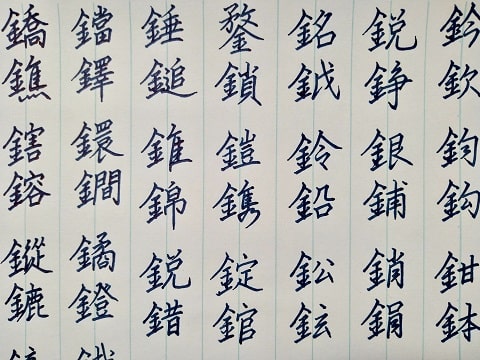 鈐欽鈞鉤鉗鉢
鋭錚銀鋪銷鋗
銘鉞鈴鉛鈆鉉
鍪鎖鎧鐫錠錧
錘鎚錐錦鋭錯
鐺鐸鐶鐧鐍鐙
鐈鐎鎋鎔鏦